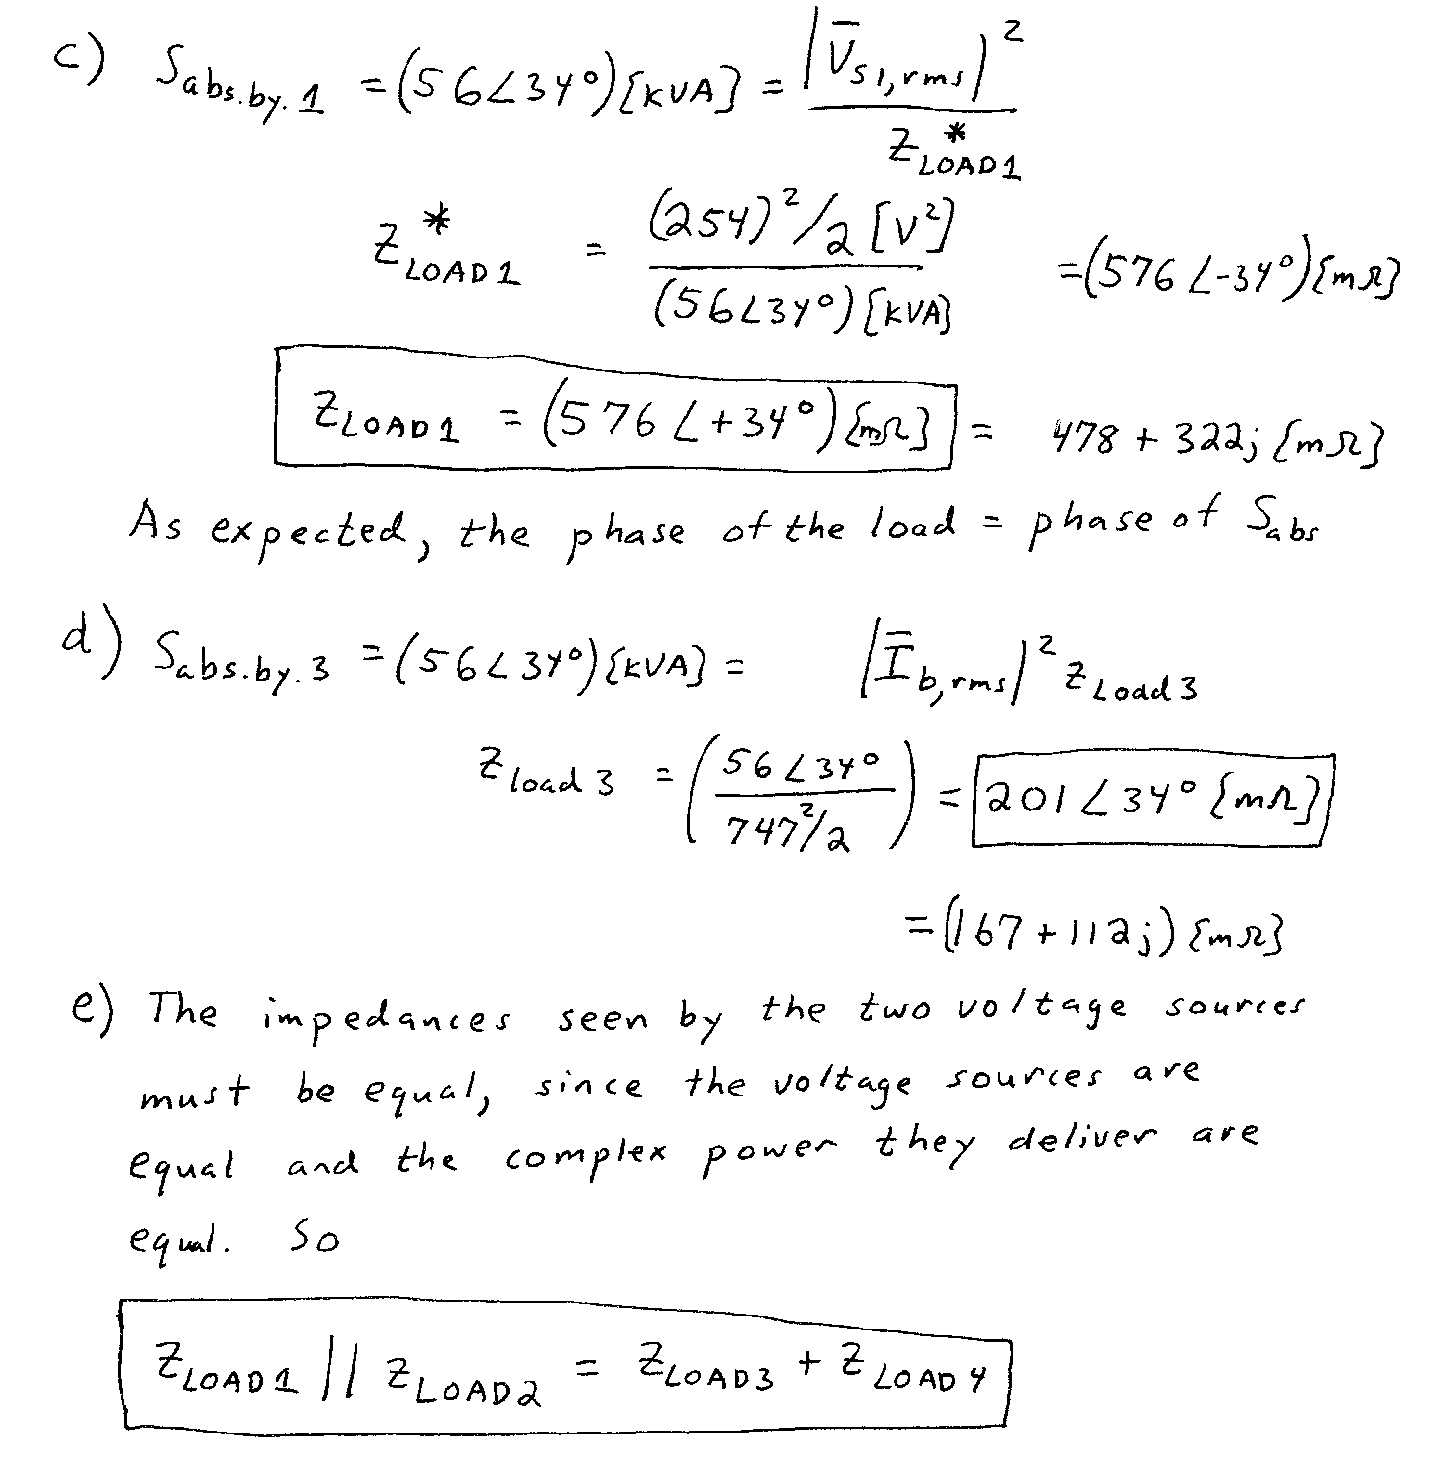 c) S_abs.by.1 = (56∠34°)[kVA] = |V̄_S1,rms|² / Z*_LOAD1
Z*_LOAD1 = (254)²/2 [V²] / (56∠34°)[kVA] = (576∠-34°)[mΩ]
Z_LOAD1 = (576∠+34°)[mΩ] = 478 + 322j [mΩ]
As expected, the phase of the load = phase of S_abs
d) S_abs.by.3 = (56∠34°)[kVA] = |Ī_b,rms|² Z_Load3
Z_load3 = (56∠34° / 747²/2) = 201∠34° [mΩ]
= (167 + 112j)[mΩ]
e) The impedances seen by the two voltage sources
must be equal, since the voltage sources are
equal and the complex power they deliver are
equal. So
Z_LOAD1 || Z_LOAD2 = Z_LOAD3 + Z_LOAD4